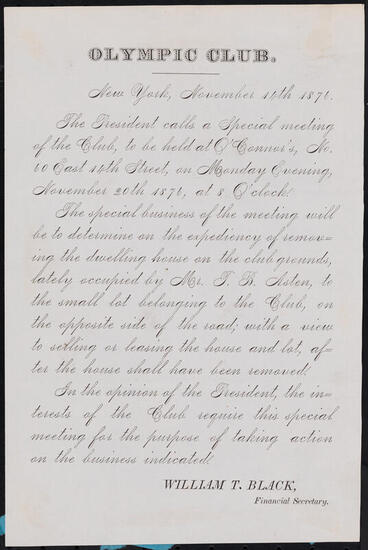 OLYMPIC CLUB.
New York, November 14th 1876.
The President calls a Special meeting
of the Club, to be held at O'Connor's, No.
60 East 14th Street, on Monday Evening,
November 20th 1876, at 8 O'clock.
The special business of the meeting will
be to determine on the expediency of remov=
ing the dwelling house on the club grounds,
lately occupied by Mr. T. B. Asten, to
the small lot belonging to the Club, on
the opposite side of the road; with a view
to selling or leasing the house and lot, af=
ter the house shall have been removed.
In the opinion of the President, the in=
terests of the Club require this special
meeting for the purpose of taking action
on the business indicated.
WILLIAM T. BLACK,
Financial Secretary.